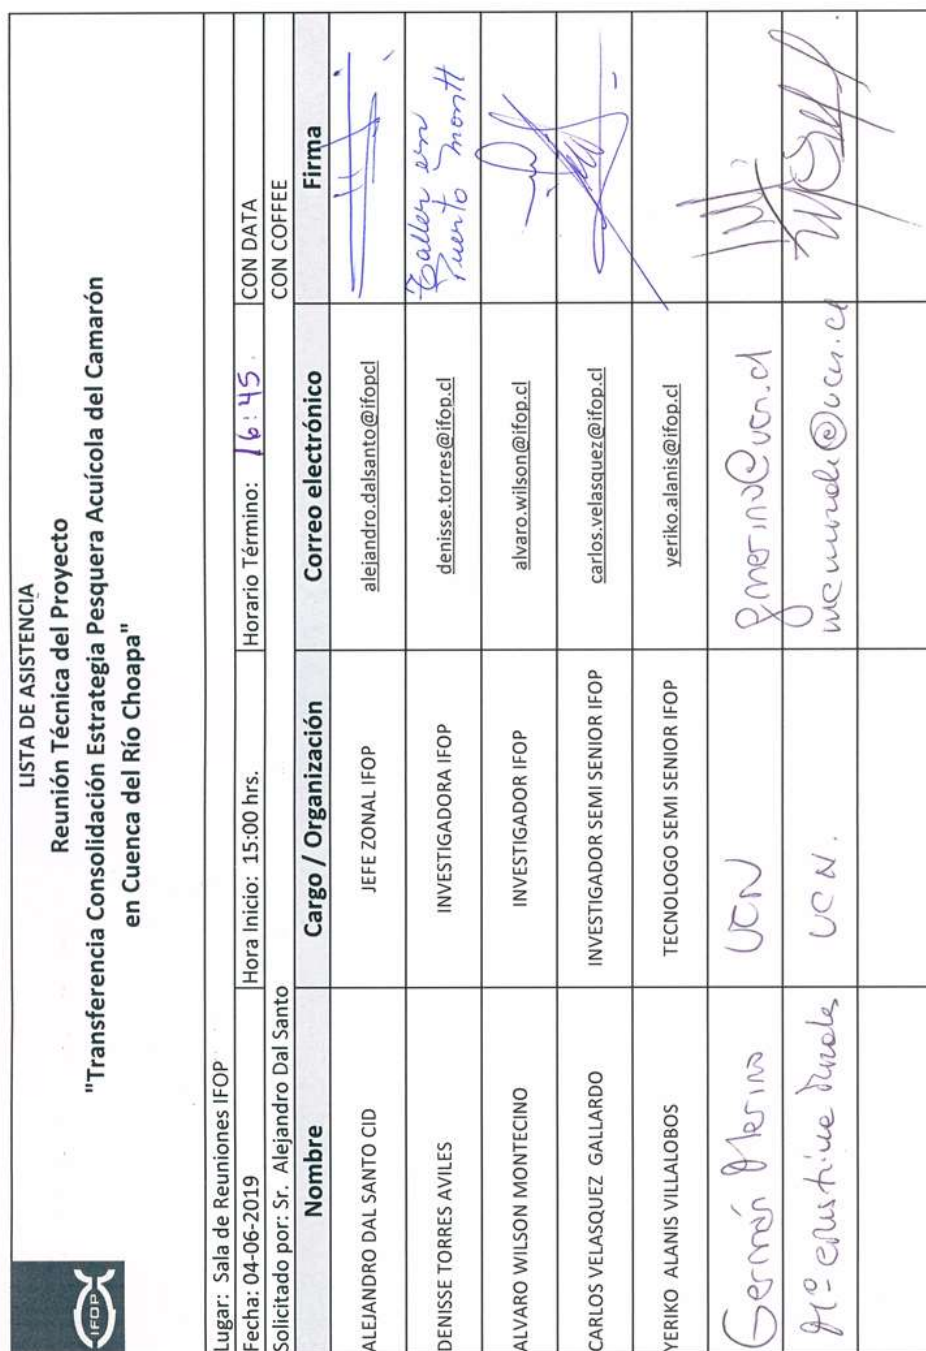 IFOP
LISTA DE ASISTENCIA
Reunión Técnica del Proyecto
"Transferencia Consolidación Estrategia Pesquera Acuícola del Camarón
en Cuenca del Río Choapa"
Lugar: Sala de Reuniones IFOP
Fecha: 04-06-2019 Hora Inicio: 15:00 hrs. Horario Término: 16:45. CON DATA
Solicitado por: Sr. Alejandro Dal Santo CON COFFEE
Nombre Cargo / Organización Correo electrónico Firma
ALEJANDRO DAL SANTO CID JEFE ZONAL IFOP alejandro.dalsanto@ifopcl
DENISSE TORRES AVILES INVESTIGADORA IFOP denisse.torres@ifop.cl Taller en
Puerto Montt
ALVARO WILSON MONTECINO INVESTIGADOR IFOP alvaro.wilson@ifop.cl
CARLOS VELASQUEZ GALLARDO INVESTIGADOR SEMI SENIOR IFOP carlos.velasquez@ifop.cl
YERIKO ALANIS VILLALOBOS TECNOLOGO SEMI SENIOR IFOP yeriko.alanis@ifop.cl
Germán Merino UCN gmerino@ucn.cl
Mª Cristina UCN.